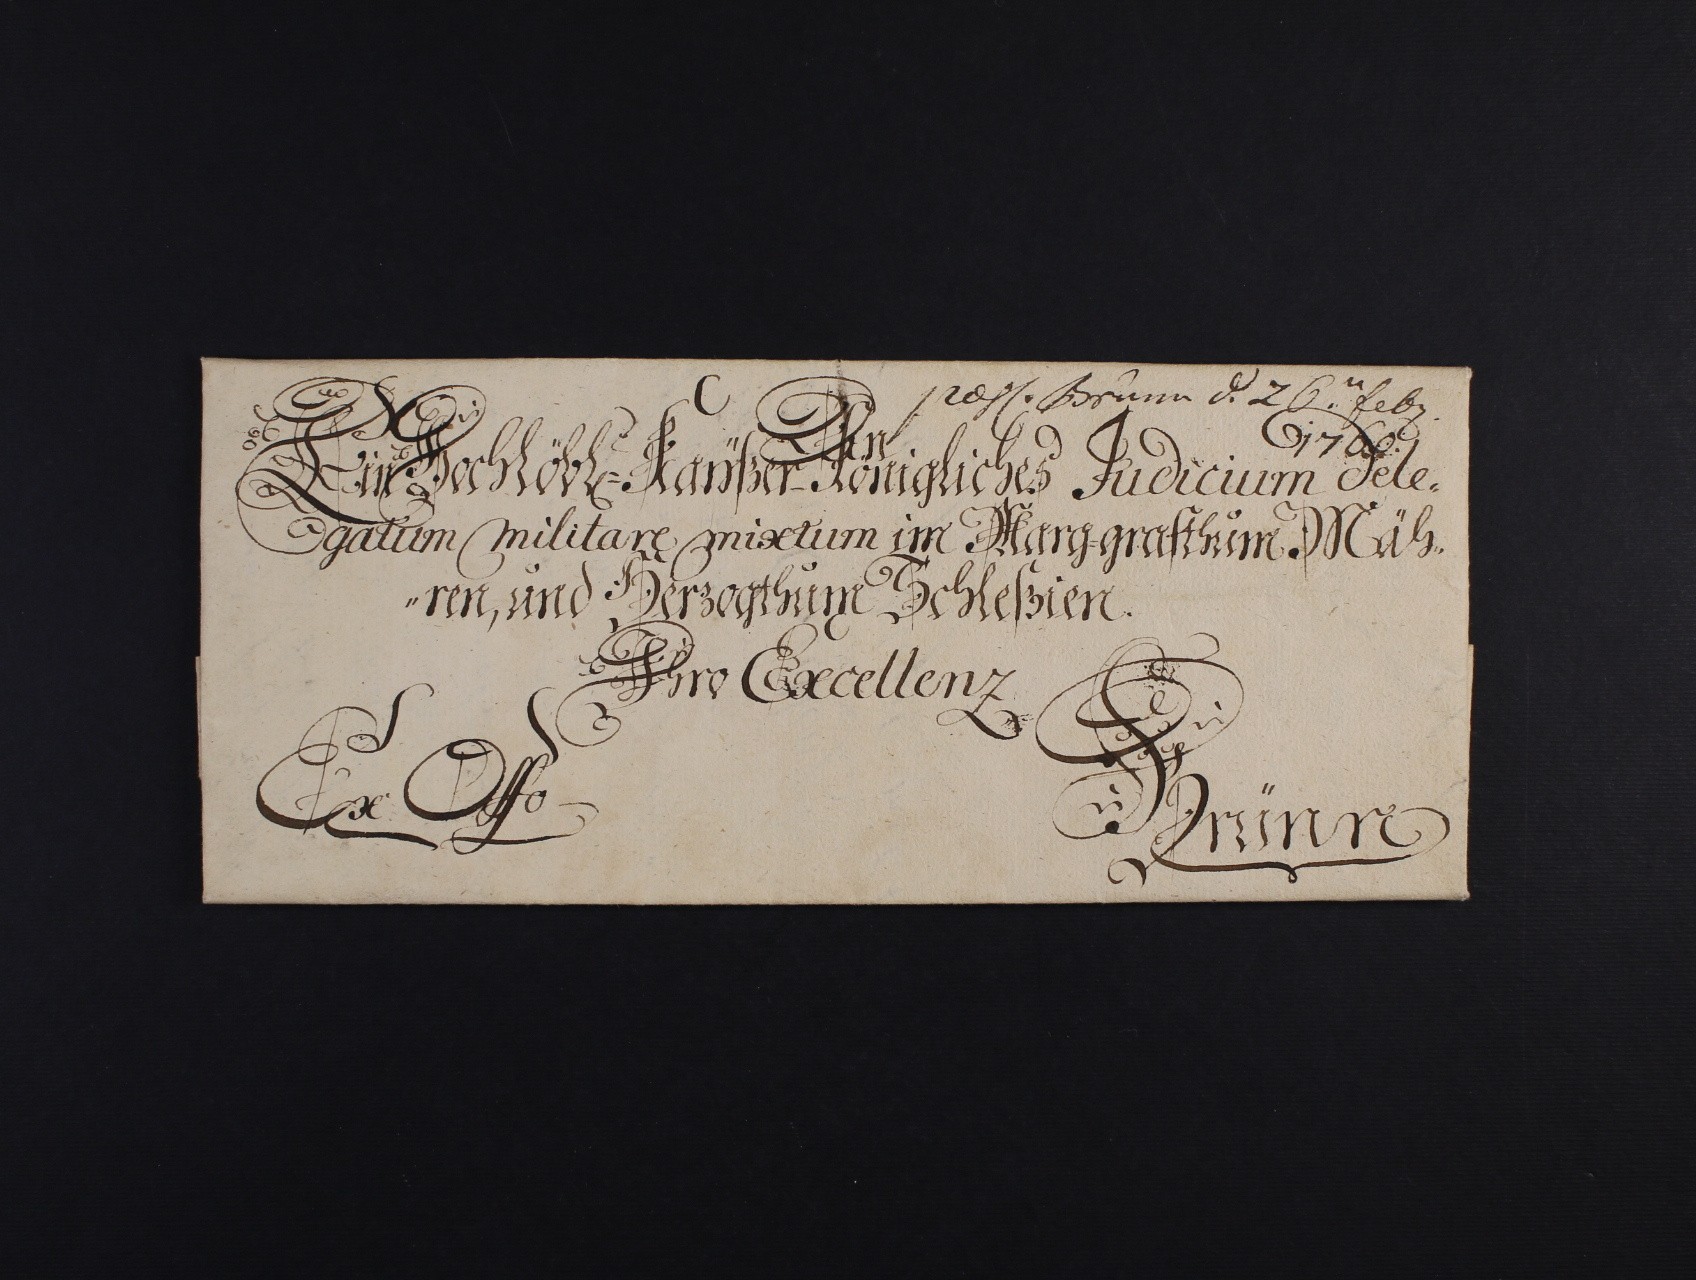 C
An
Brünn d. 26.ten feb.
1760.
Ein Hochlöbl= Kaÿßer-Königliches Judicium Dele-
gatum militare mixtum im Marg-grafthum Mäh-
"ren, und Herzogthum Schleßien.
Ihro Excellenz
Ex Offo
Brünn